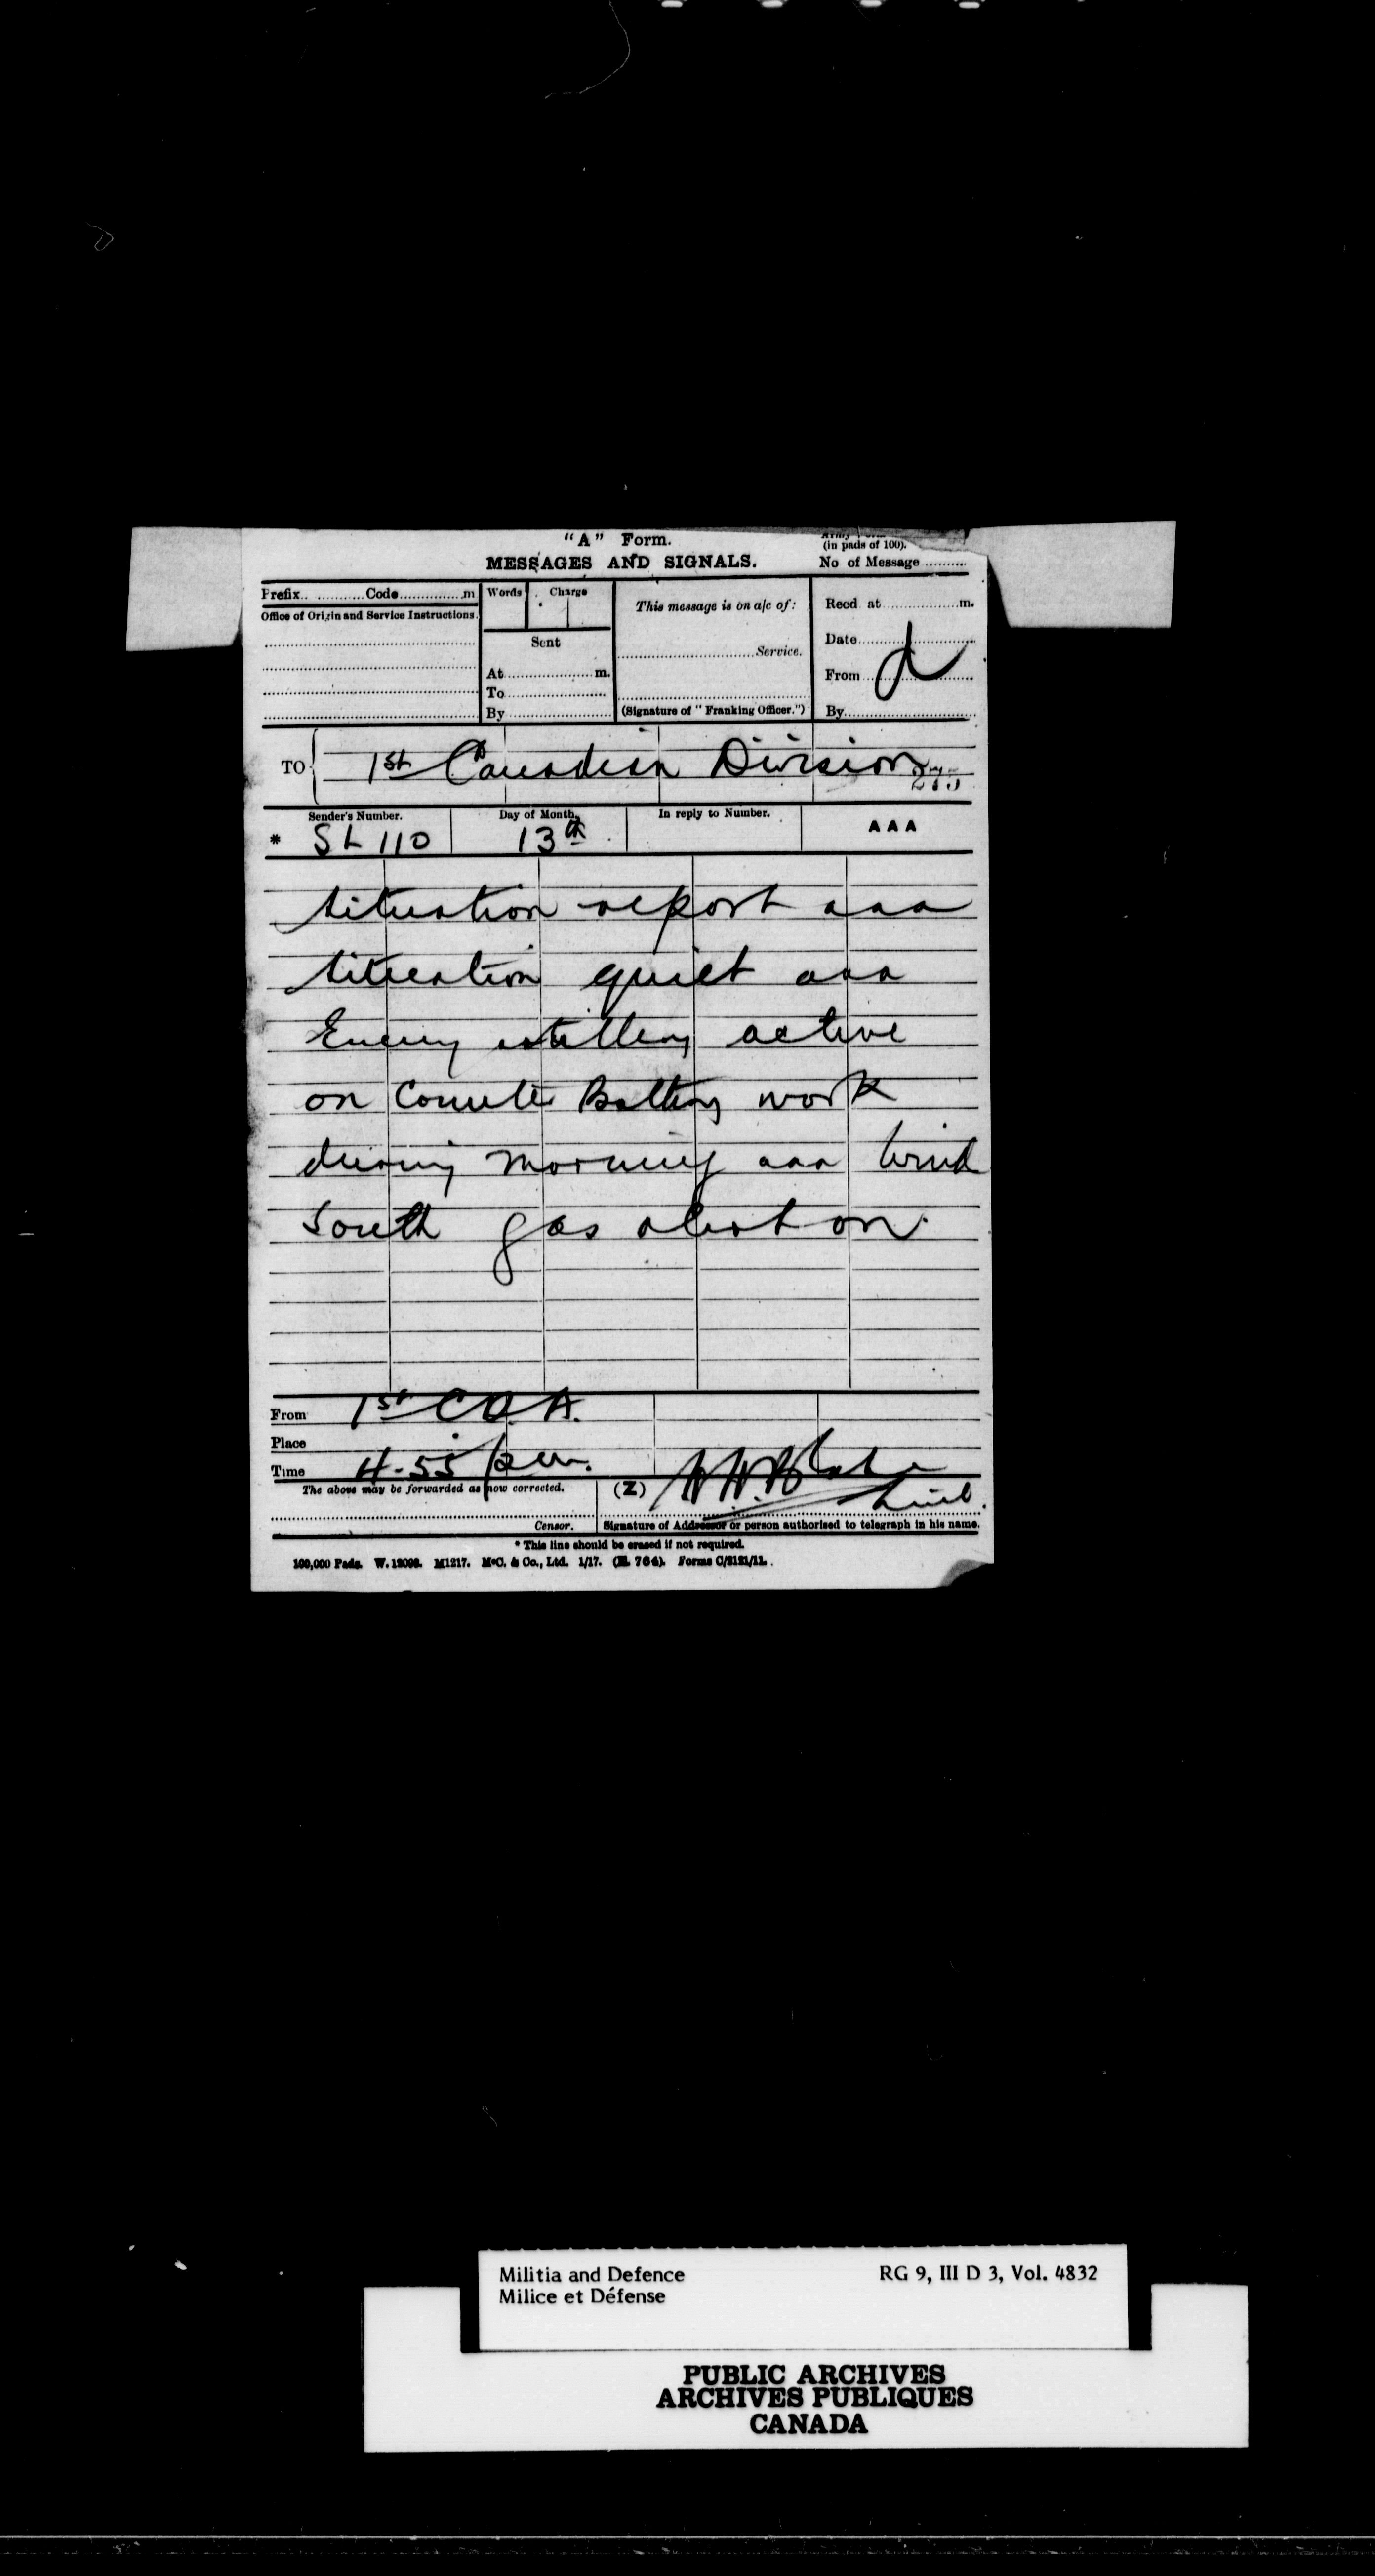 "A" Form.
MESSAGES AND SIGNALS.
(in pads of 100).
No of Message ..........
Prefix.. ............Code...............m
Words Charge
This message is on a/c of:
Recd at...................m.
Office of Origin and Service Instructions.
Sent
Date.............................
..................................Service.
At......................m.
From
To
By
(Signature of "Franking Officer.")
By
TO 1st Canadian Division
275
Sender's Number. Day of Month. In reply to Number. AAA
* SL 110 13th
Situation report aaa
Situation quiet aaa
Enemy artillery active
on Counter Battery work
during morning aaa Wind
South gas alert on.
From 1st C D. A.
Place
Time 4-55 pm.
The above may be forwarded as now corrected. (Z)
Lieut.
Censor. Signature of Addressor or person authorised to telegraph in his name.
* This line should be erased if not required.
100,000 Pads. W. 12098. M1217. McC. & Co., Ltd. 1/17. (E. 764). Forms C/2121/11.
Militia and Defence RG 9, III D 3, Vol. 4832
Milice et Défense
PUBLIC ARCHIVES
ARCHIVES PUBLIQUES
CANADA